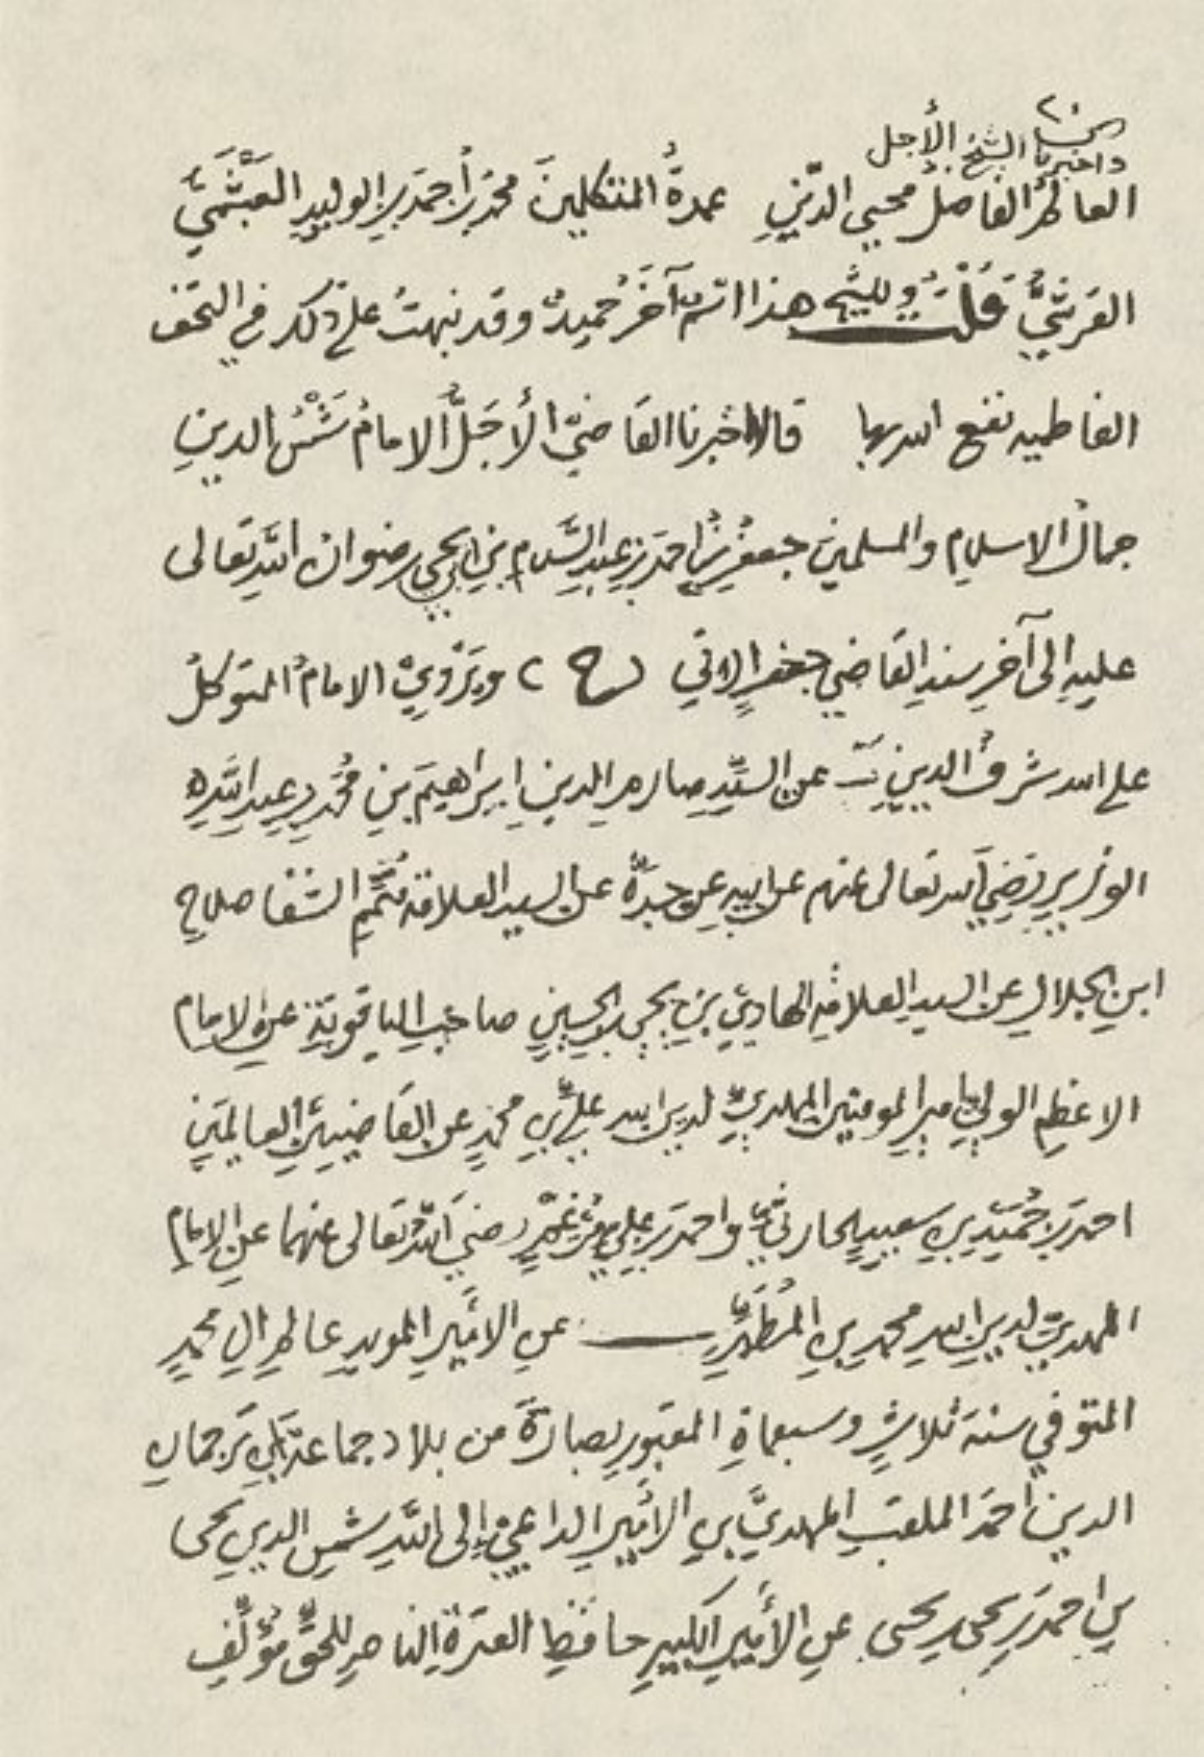 واخبرنا الشيخ الأجل
العالم الفاضل محيي الدّينِ عمدةُ المتكلمينَ محمّد بن أحمدَ بنِ الوليدِ العَبْشَمِيُّ
القرشيُّ قُلْتُ وللشيخ هذا اسمٌ آخَرُ حُمِيدٌ وقد نبهتُ على ذلك في التحف
الفاطميه نفع الله بها قال اخبرنا القَاضيْ الأجَلُّ الامامُ شَمْسُ الدينِ
جمالُ الاسلامِ والمسلمينَ جعفرُ بنُ احمدَ بنِ عبدِ السَّلامِ بنِ ابي يحيى رضوانُ اللَّهِ تعالى
عليهِ إلى آخرِ سندِ القَاضي جعفرٍ الاتي ح ويَرْوِيْ الامامُ المتوكلُ
على الله شرفُ الدينِ عن السَّيِّدِ صارمِ الدينِ إبراهيمَ بنِ مُحَمَّدِ بنِ عبدِ اللَّهِ
الوزيرِ رَضِيَ الله تعالى عنهم عن ابيهِ عن جدِّهِ عن السيدِ العلامةِ مُتَمِّمِ الشفا صلاحِ
ابنِ الجلالِ عن السيدِ العلامةِ الهاديْ بنِ يحيى بنِ الحسينِ صاحبِ الياقوتةِ عن الامامِ
الاعظمِ الوليِّ اميرِ المومنينَ المهديِّ لدينِ الله عليِّ بنِ محمدٍ عن القَاضِيَينِ العالِمَينِ
احمدَ بنِ حُمَيْدِ بنِ سعيدٍ الحارثيِّ واحمدَ بنِ عليِّ مرغمٍ رضيَ اللَّهُ تعالى عنهما عنِ الامامِ
المهديِّ لدينِ اللهِ محمدِ بنِ المُطَهَّرِ عنِ الأميرِ المويدِ عالمِ الِ محمدٍ
المتوفي سنةَ ثلاثٍ وسبعمائةِ المقبورِ بصارةَ من بلاد جماعةَ بنِ تَرجمانِ
الدين أحمَدَ الملقبِ المهديِّ بنِ الأميرِ الداعيْ إلى اللَّهِ شمسِ الدينِ يحيى
بنِ احمدَ بنِ يحيى بنِ يحيى عنِ الأميرِ الكبيرِ حافظِ العترةِ الناصرِ للحقِّ مؤلِّفِ